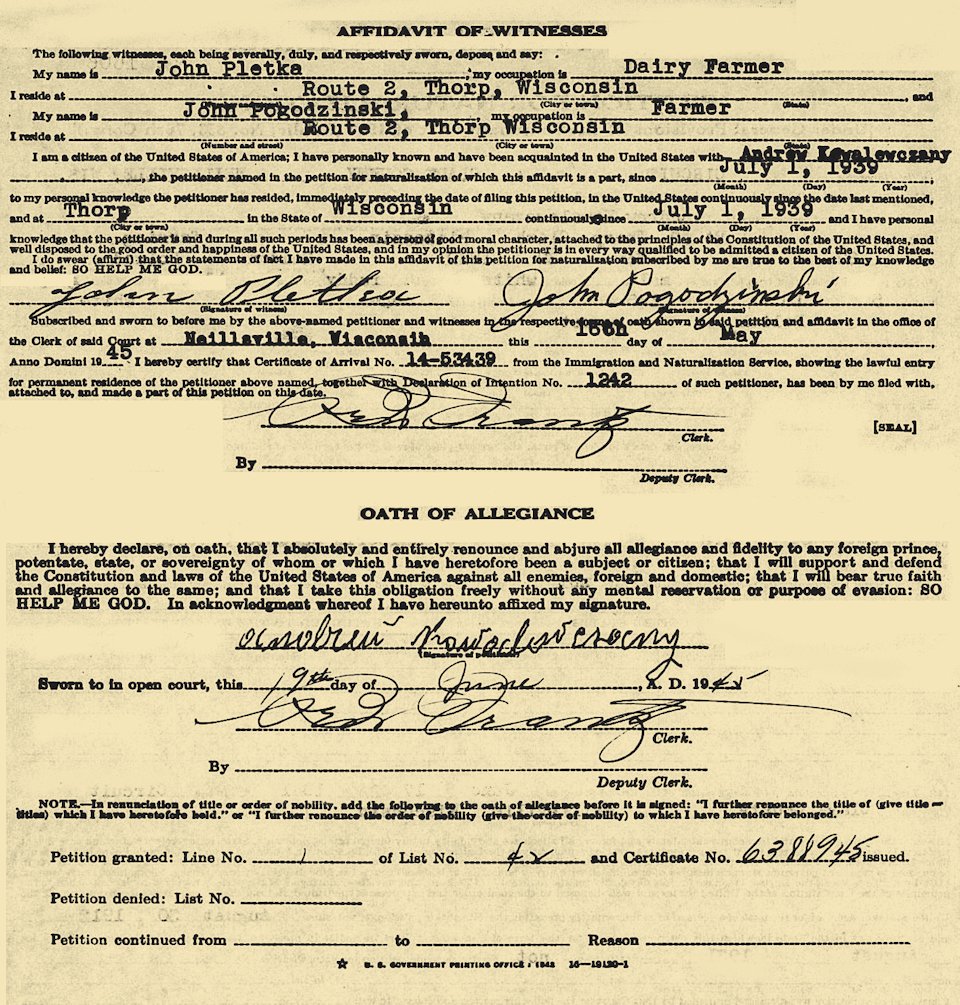 AFFIDAVIT OF WITNESSES
The following witnesses, each being severally, duly, and respectively sworn, depose and say:
My name is John Pletka, my occupation is Dairy Farmer
I reside at Route 2, Thorp, Wisconsin, and
(City or town) (State)
My name is John Pogodzinski, my occupation is Farmer
I reside at Route 2, Thorp Wisconsin
(Number and street) (City or town) (State)
I am a citizen of the United States of America; I have personally known and have been acquainted in the United States with Andrew Kowalewczany
, the petitioner named in the petition for naturalization of which this affidavit is a part, since July 1, 1939,
(Month) (Day) (Year)
to my personal knowledge the petitioner has resided, immediately preceding the date of filing this petition, in the United States continuously since the date last mentioned,
and at Thorp in the State of Wisconsin continuously since July 1, 1939 and I have personal
(City or town) (Month) (Day) (Year)
knowledge that the petitioner is and during all such periods has been a person of good moral character, attached to the principles of the Constitution of the United States, and
well disposed to the good order and happiness of the United States, and in my opinion the petitioner is in every way qualified to be admitted a citizen of the United States.
I do swear (affirm) that the statements of fact I have made in this affidavit of this petition for naturalization subscribed by me are true to the best of my knowledge
and belief: SO HELP ME GOD.
John Pletka John Pogodzinski
(Signature of witness) (Signature of witness)
Subscribed and sworn to before me by the above-named petitioner and witnesses in the respective forms of oath shown in said petition and affidavit in the office of
the Clerk of said Court at Neillsville, Wisconsin this day of May
Anno Domini 1945. I hereby certify that Certificate of Arrival No. 14-53439 from the Immigration and Naturalization Service, showing the lawful entry
for permanent residence of the petitioner above named, together with Declaration of Intention No. 1242 of such petitioner, has been by me filed with,
attached to, and made a part of this petition on this date.
Frantz
Clerk.
[SEAL]
By
Deputy Clerk.
OATH OF ALLEGIANCE
I hereby declare, on oath, that I absolutely and entirely renounce and abjure all allegiance and fidelity to any foreign prince,
potentate, state, or sovereignty of whom or which I have heretofore been a subject or citizen; that I will support and defend
the Constitution and laws of the United States of America against all enemies, foreign and domestic; that I will bear true faith
and allegiance to the same; and that I take this obligation freely without any mental reservation or purpose of evasion: SO
HELP ME GOD. In acknowledgment whereof I have hereunto affixed my signature.
andrew Kowalewczany
(Signature of petitioner)
Sworn to in open court, this 9th day of June, A. D. 1945
Frantz
Clerk.
By
Deputy Clerk.
NOTE.—In renunciation of title or order of nobility, add the following to the oath of allegiance before it is signed: "I further renounce the title of (give title or
titles) which I have heretofore held." or "I further renounce the order of nobility (give the order of nobility) to which I have heretofore belonged."
Petition granted: Line No. 1 of List No. 42 and Certificate No. 6388945 issued.
Petition denied: List No.
Petition continued from to Reason
☆ U. S. GOVERNMENT PRINTING OFFICE : 1942 16—19120-1